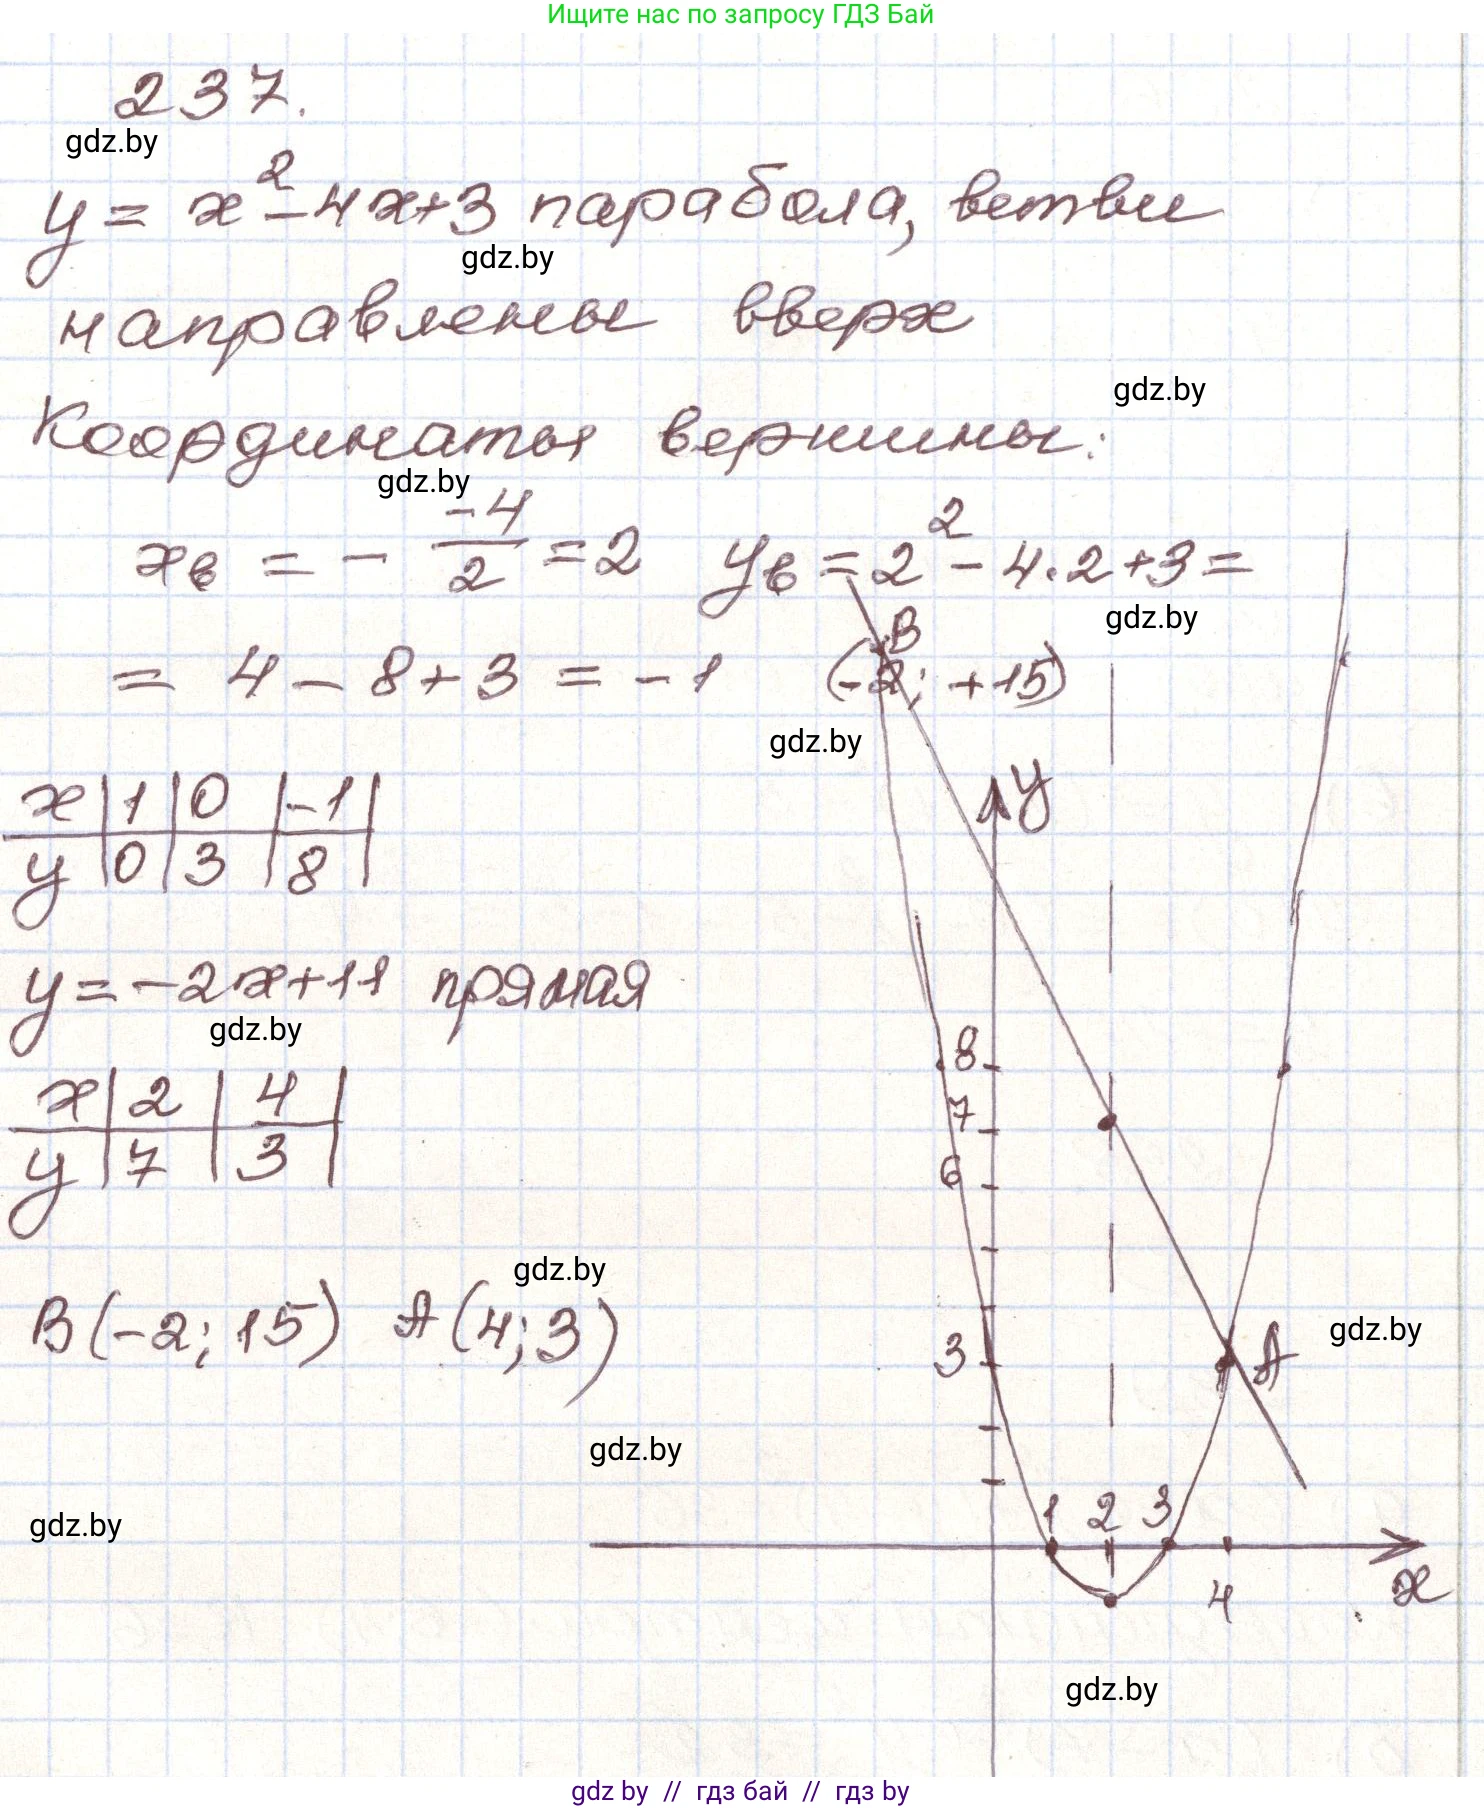 Ищите нас по запросу ГДЗ Бай
237.
gdz.by
y = x² - 4x + 3 парабола, ветви
gdz.by
направлены вверх
gdz.by
Координаты вершины:
gdz.by
xв = - -4/2 = 2 yв = 2² - 4·2 + 3 =
gdz.by
= 4 - 8 + 3 = -1
B
(-2; +15)
gdz.by
x | 1 | 0 | -1 |
y | 0 | 3 | 8 |
y
y = -2x + 11 прямая
gdz.by
8
x | 2 | 4 |
y | 7 | 3 |
7
6
gdz.by
B(-2; 15) A(4; 3)
gdz.by
3
A
gdz.by
gdz.by
1 2 3
4
x
gdz.by
gdz by // гдз бай // гдз by